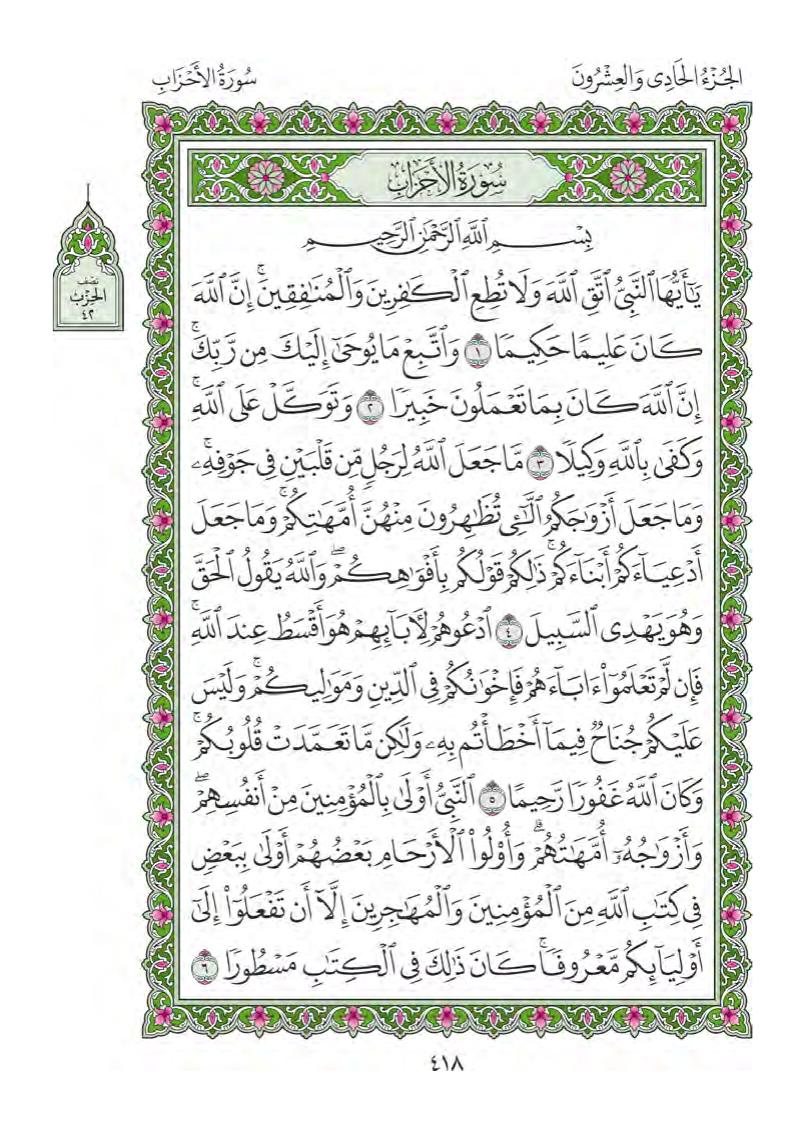 الجُزْءُ الحَادِى وَالعِشْرُونَ
سُورَةُ الأَحْزَابِ
سُورَةُ الأَحْزَابِ
نصف
الحِزْبِ
٤٢
بِسْمِ ٱللَّهِ ٱلرَّحْمَٰنِ ٱلرَّحِيمِ
يَٰٓأَيُّهَا ٱلنَّبِيُّ ٱتَّقِ ٱللَّهَ وَلَا تُطِعِ ٱلْكَٰفِرِينَ وَٱلْمُنَٰفِقِينَۚ إِنَّ ٱللَّهَ
كَانَ عَلِيمًا حَكِيمًا ١ وَٱتَّبِعْ مَا يُوحَىٰٓ إِلَيْكَ مِن رَّبِّكَۚ
إِنَّ ٱللَّهَ كَانَ بِمَا تَعْمَلُونَ خَبِيرًا ٢ وَتَوَكَّلْ عَلَى ٱللَّهِۚ
وَكَفَىٰ بِٱللَّهِ وَكِيلًا ٣ مَّا جَعَلَ ٱللَّهُ لِرَجُلٍ مِّن قَلْبَيْنِ فِى جَوْفِهِۦۚ
وَمَا جَعَلَ أَزْوَٰجَكُمُ ٱلَّٰٓـِٔى تُظَٰهِرُونَ مِنْهُنَّ أُمَّهَٰتِكُمْۚ وَمَا جَعَلَ
أَدْعِيَآءَكُمْ أَبْنَآءَكُمْۚ ذَٰلِكُمْ قَوْلُكُم بِأَفْوَٰهِكُمْۖ وَٱللَّهُ يَقُولُ ٱلْحَقَّ
وَهُوَ يَهْدِى ٱلسَّبِيلَ ٤ ٱدْعُوهُمْ لِأٓبَآئِهِمْ هُوَ أَقْسَطُ عِندَ ٱللَّهِۚ
فَإِن لَّمْ تَعْلَمُوٓا۟ ءَابَآءَهُمْ فَإِخْوَٰنُكُمْ فِى ٱلدِّينِ وَمَوَٰلِيكُمْۚ وَلَيْسَ
عَلَيْكُمْ جُنَاحٌ فِيمَآ أَخْطَأْتُم بِهِۦ وَلَٰكِن مَّا تَعَمَّدَتْ قُلُوبُكُمْۚ
وَكَانَ ٱللَّهُ غَفُورًا رَّحِيمًا ٥ ٱلنَّبِيُّ أَوْلَىٰ بِٱلْمُؤْمِنِينَ مِنْ أَنفُسِهِمْۖ
وَأَزْوَٰجُهُۥٓ أُمَّهَٰتُهُمْۗ وَأُو۟لُوا۟ ٱلْأَرْحَامِ بَعْضُهُمْ أَوْلَىٰ بِبَعْضٍ
فِى كِتَٰبِ ٱللَّهِ مِنَ ٱلْمُؤْمِنِينَ وَٱلْمُهَٰجِرِينَ إِلَّآ أَن تَفْعَلُوٓا۟ إِلَىٰٓ
أَوْلِيَآئِكُم مَّعْرُوفًاۚ كَانَ ذَٰلِكَ فِى ٱلْكِتَٰبِ مَسْطُورًا ٦
٤١٨